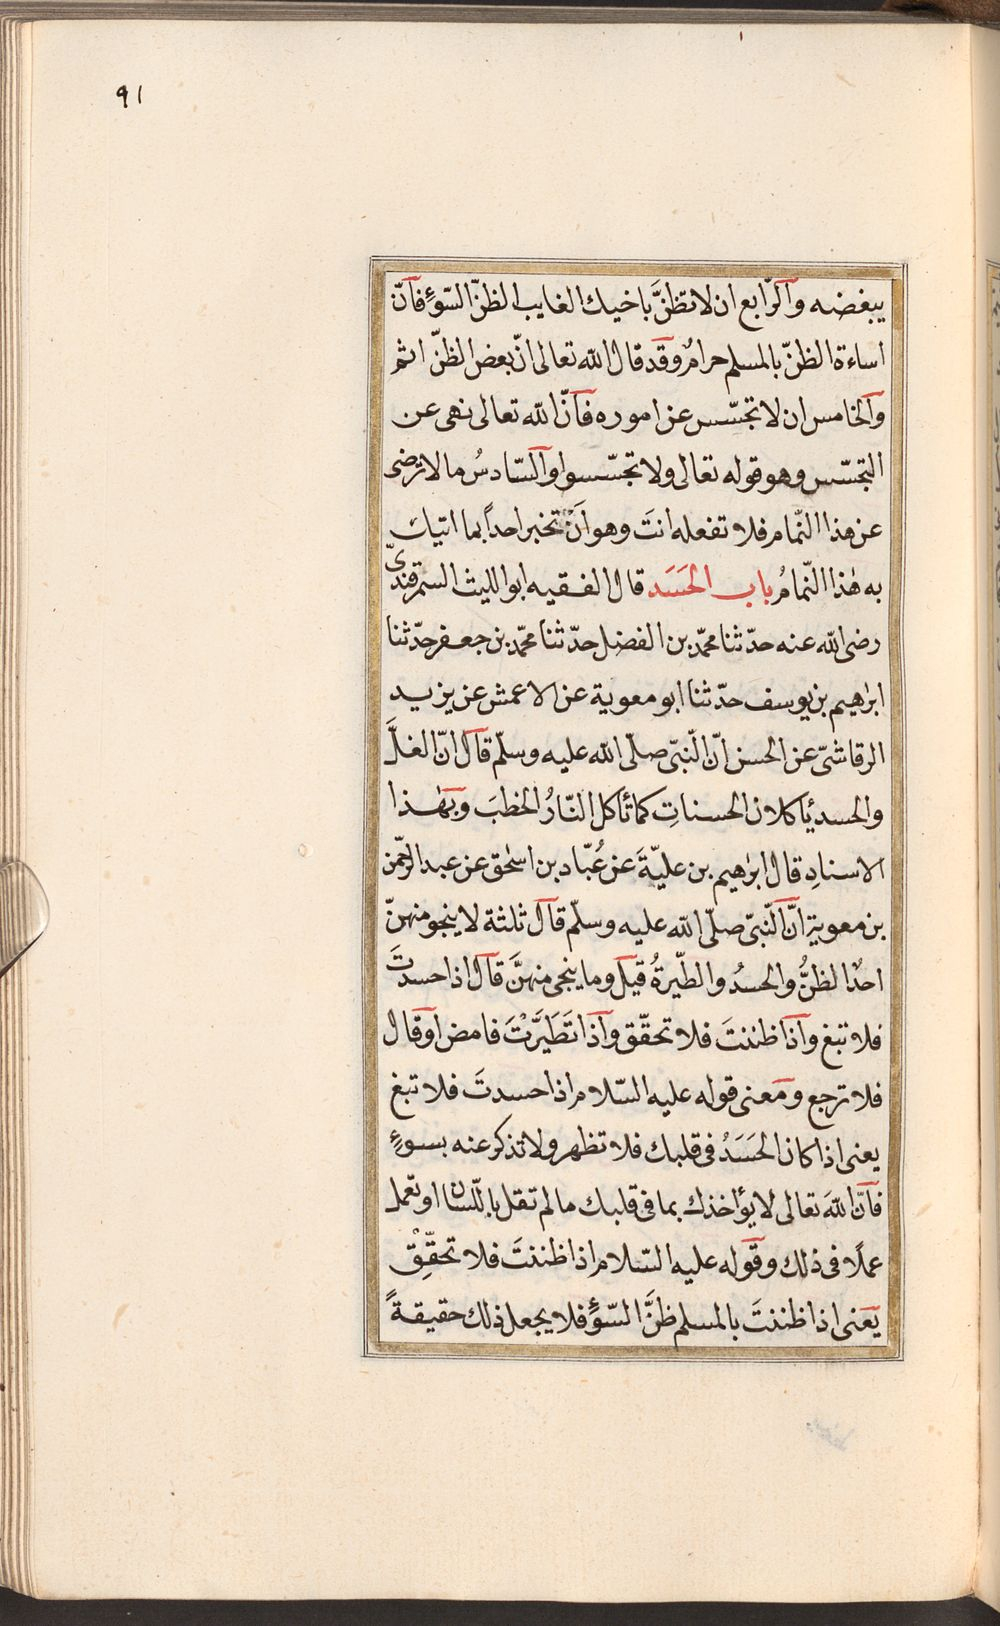 ٩١
يبغضه والرّابع ان لا تظنَّ باخيك الغايب الظنّ السّوءِ فانّ
اساءة الظنّ بالمسلم حرامٌ وقد قال الله تعالى انّ بعض الظنّ اثم
والخامس ان لا تجسّس عن اموره فانّ الله تعالى نهى عن
التجسّس وهو قوله تعالى ولا تجسّسوا والسّادسُ ما لا ترضى
عن هذا النّمام فلا تفعله انتَ وهو اَنْ تخبر احداً بما اتيك
به هٰذا النّمامُ باب الحَسَد قال الفقيه ابو الليث السمرقندىّ
رضى الله عنه حدّثنا محمّد بن الفضل حدّثنا محمّد بن جعفر حدّثنا
ابرٰهيم بن يوسف حدّثنا ابو معوية عن الاعمش عن يزيد
الرقاشىّ عن الحسن انّ النّبىّ صلّى الله عليه وسلّم قال انّ الغلَّ
والحسد ئاكلان الحسناتِ كما تٔاكل النّارُ الحطبَ وبهٰذا
الاسنادِ قال ابرٰهيم بن عليّةَ عن عُبّاد بن اسٰحق عن عبد الرّحمٰن
بن معوية انّ النّبىّ صلّى الله عليه وسلّم قال ثلٰثة لا ينجو منهنّ
احدٌ الظنُّ والحسدُ والطّيرةُ قيل وما ينجى منهنَّ قال اذا حسدتَ
فلا تبغ واذا ظننتَ فلا تحقّق واذا تَطَيَّرْتَ فامض او قال
فلا ترجع ومعنى قوله عليه السّلام اذا حسدتَ فلا تبغ
يعنى اذا كان الحَسَدُ فى قلبك فلا تظهر ولا تذكر عنه بسوءٍ
فانّ اللهَ تعالى لا يؤاخذك بما فى قلبك ما لم تقل باللّسان او تعمل
عملًا فى ذلك وقوله عليه السّلام اذا ظننتَ فلا تحقّقْ
يعنى اذا ظننتَ بالمسلم ظنَّ السّوءِ فلا يجعل ذلك حقيقةً